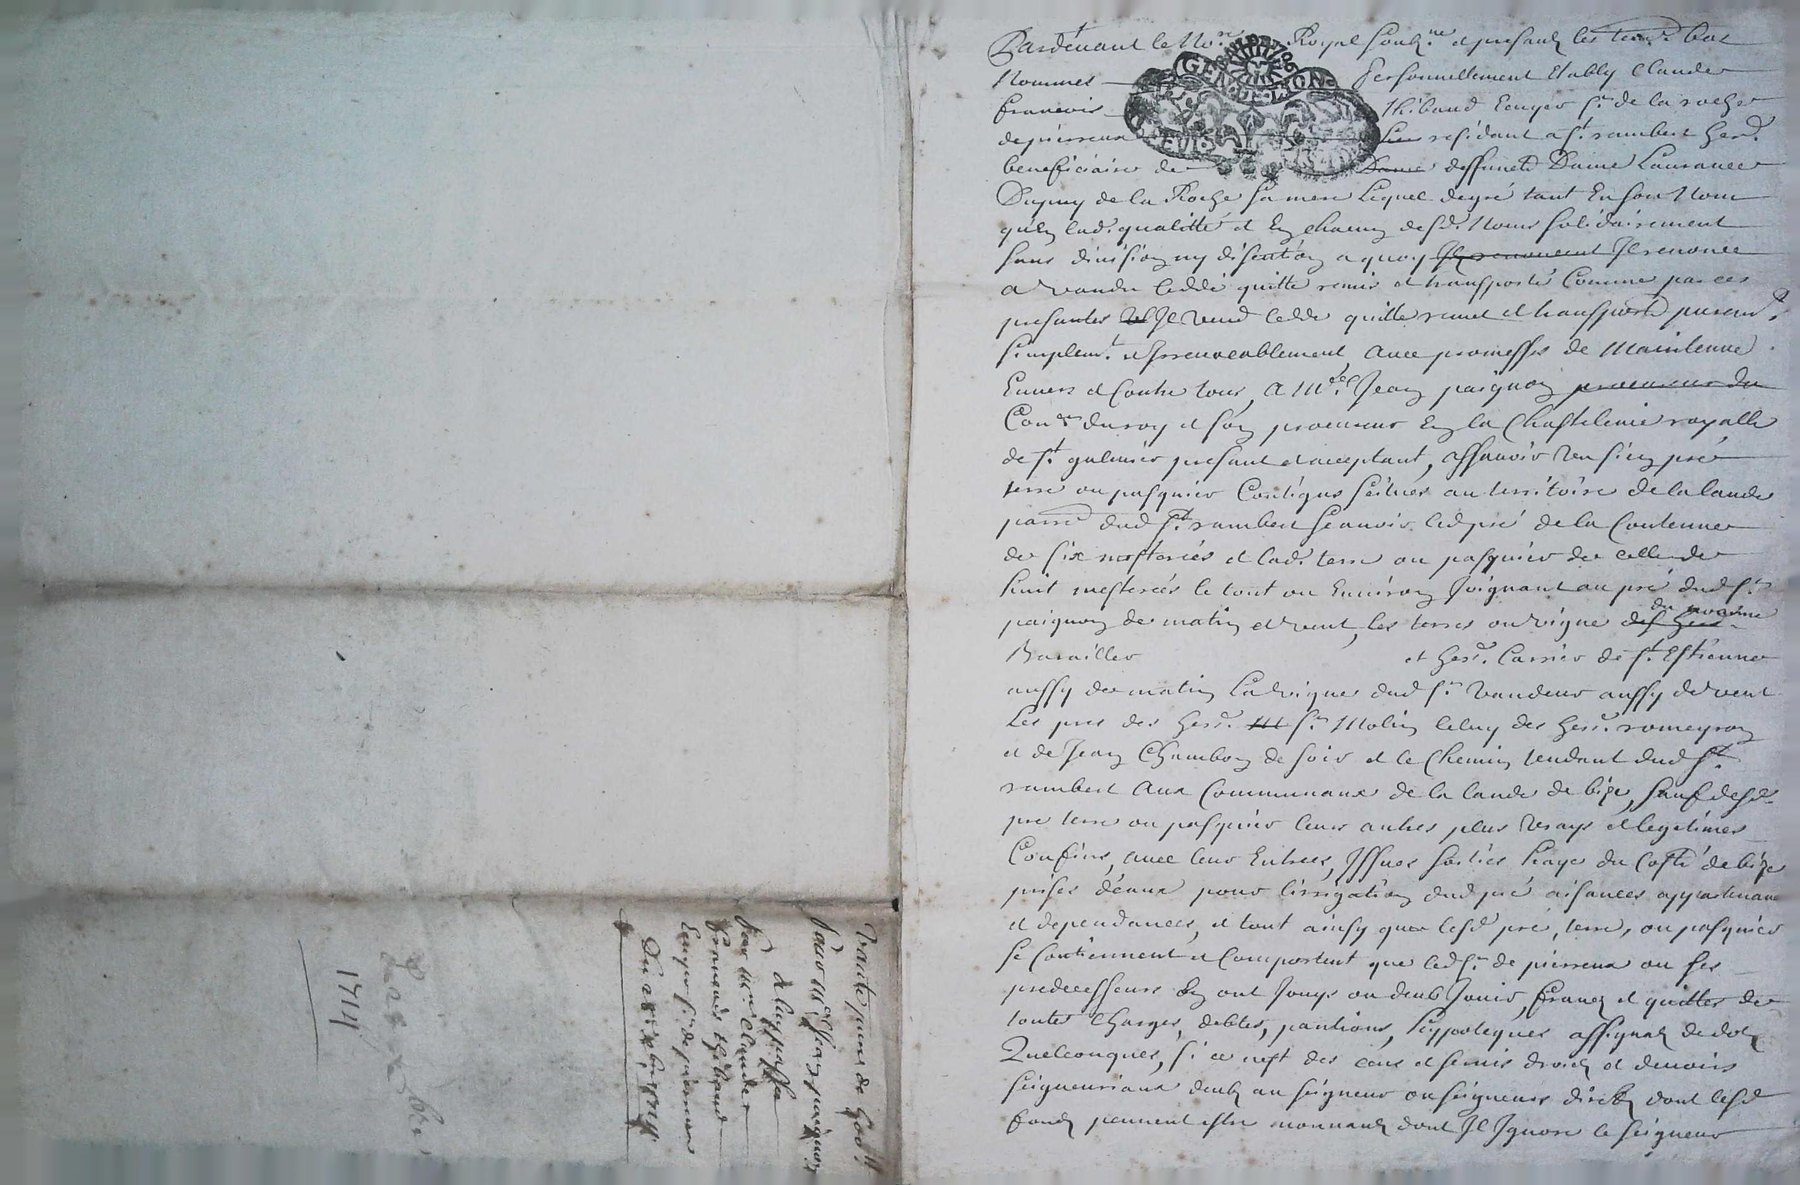 Pardevant le No.re Royal soub.ne et presants les tesm. bas
Nommes personnellement Estably Claude
francois Thibaud Ecuyer s.r de la roche
de pierreux residant a s.t rambert her.
beneficiaire de deffuncte Dame Laurance
Dupuy de la Roche sa mere Lequel degré tant En son Nom
qu'en lad. qualitté et En chacun desd. Noms solidairement
sans division ny discution a quoy Il renonce
a vandu ceddé quitté remis et transporté Comme par ces
presantes Il vend cedde quitte remet et transporte purem.t
simplem.t et Irrevocablement avec promesses de Maintenue
Envers et Contre tous, A M.e Jean paignon procureur du
Con.er du roy et son procureur En la Chastelenie royalle
de s.t galmier presant et acceptant, assavoir Un sien pré
terre ou pasquier Contigus scitués au territoire de la lande
parr. dud s.t rambert scavoir led pré de la Contenue
de six mesterées et lad. terre ou pasquier de celle de
huit mesterées le tout ou Environ Joignant au pré dud s.r
paignon de matin et vent, les terres ou vigne des her.
du
Barailler et her. Carrier de s.t Estienne
aussy de matin La vigne dud s.r vandeur aussy de vent
Les pres des her. s.r Molin celuy des her. romeyron
et de Jean Chambon de soir et le Chemin tendant dud s.t
rambert aux Communaux de la lande de bize, sauf desd.
pre terre ou pasquier leurs autres plus vrays et legitimes
Confins, avec leur Entrées, Issues sorties du Costé de bize
prises d'eaux pour l'irrigation dud pré aisances appartenan
et dependances, et tout ainsy que lesd pré, terre, ou pasquier
se Contiennent et Comportent que led s.r de pierreux ou ses
predecesseurs En ont Jouys ou deub Jouir, francs et quittes de
toutes Charges, debtes, pantions, hyppoteques assignats de dots
Quelconques, si ce n'est des cens et servis droits et devoirs
seigneuriaux deubs au seigneur ou seigneurs directs dont lesd
fonds peuvent estre mouvants dont Il Ignore le seigneur
GEN DE LYON
vante pure de 600 ll
Pour M.e Jean paignon
a luy passée
Par M.re Claude
francois thibaud
Ecuyer s.r de pierreux
1714